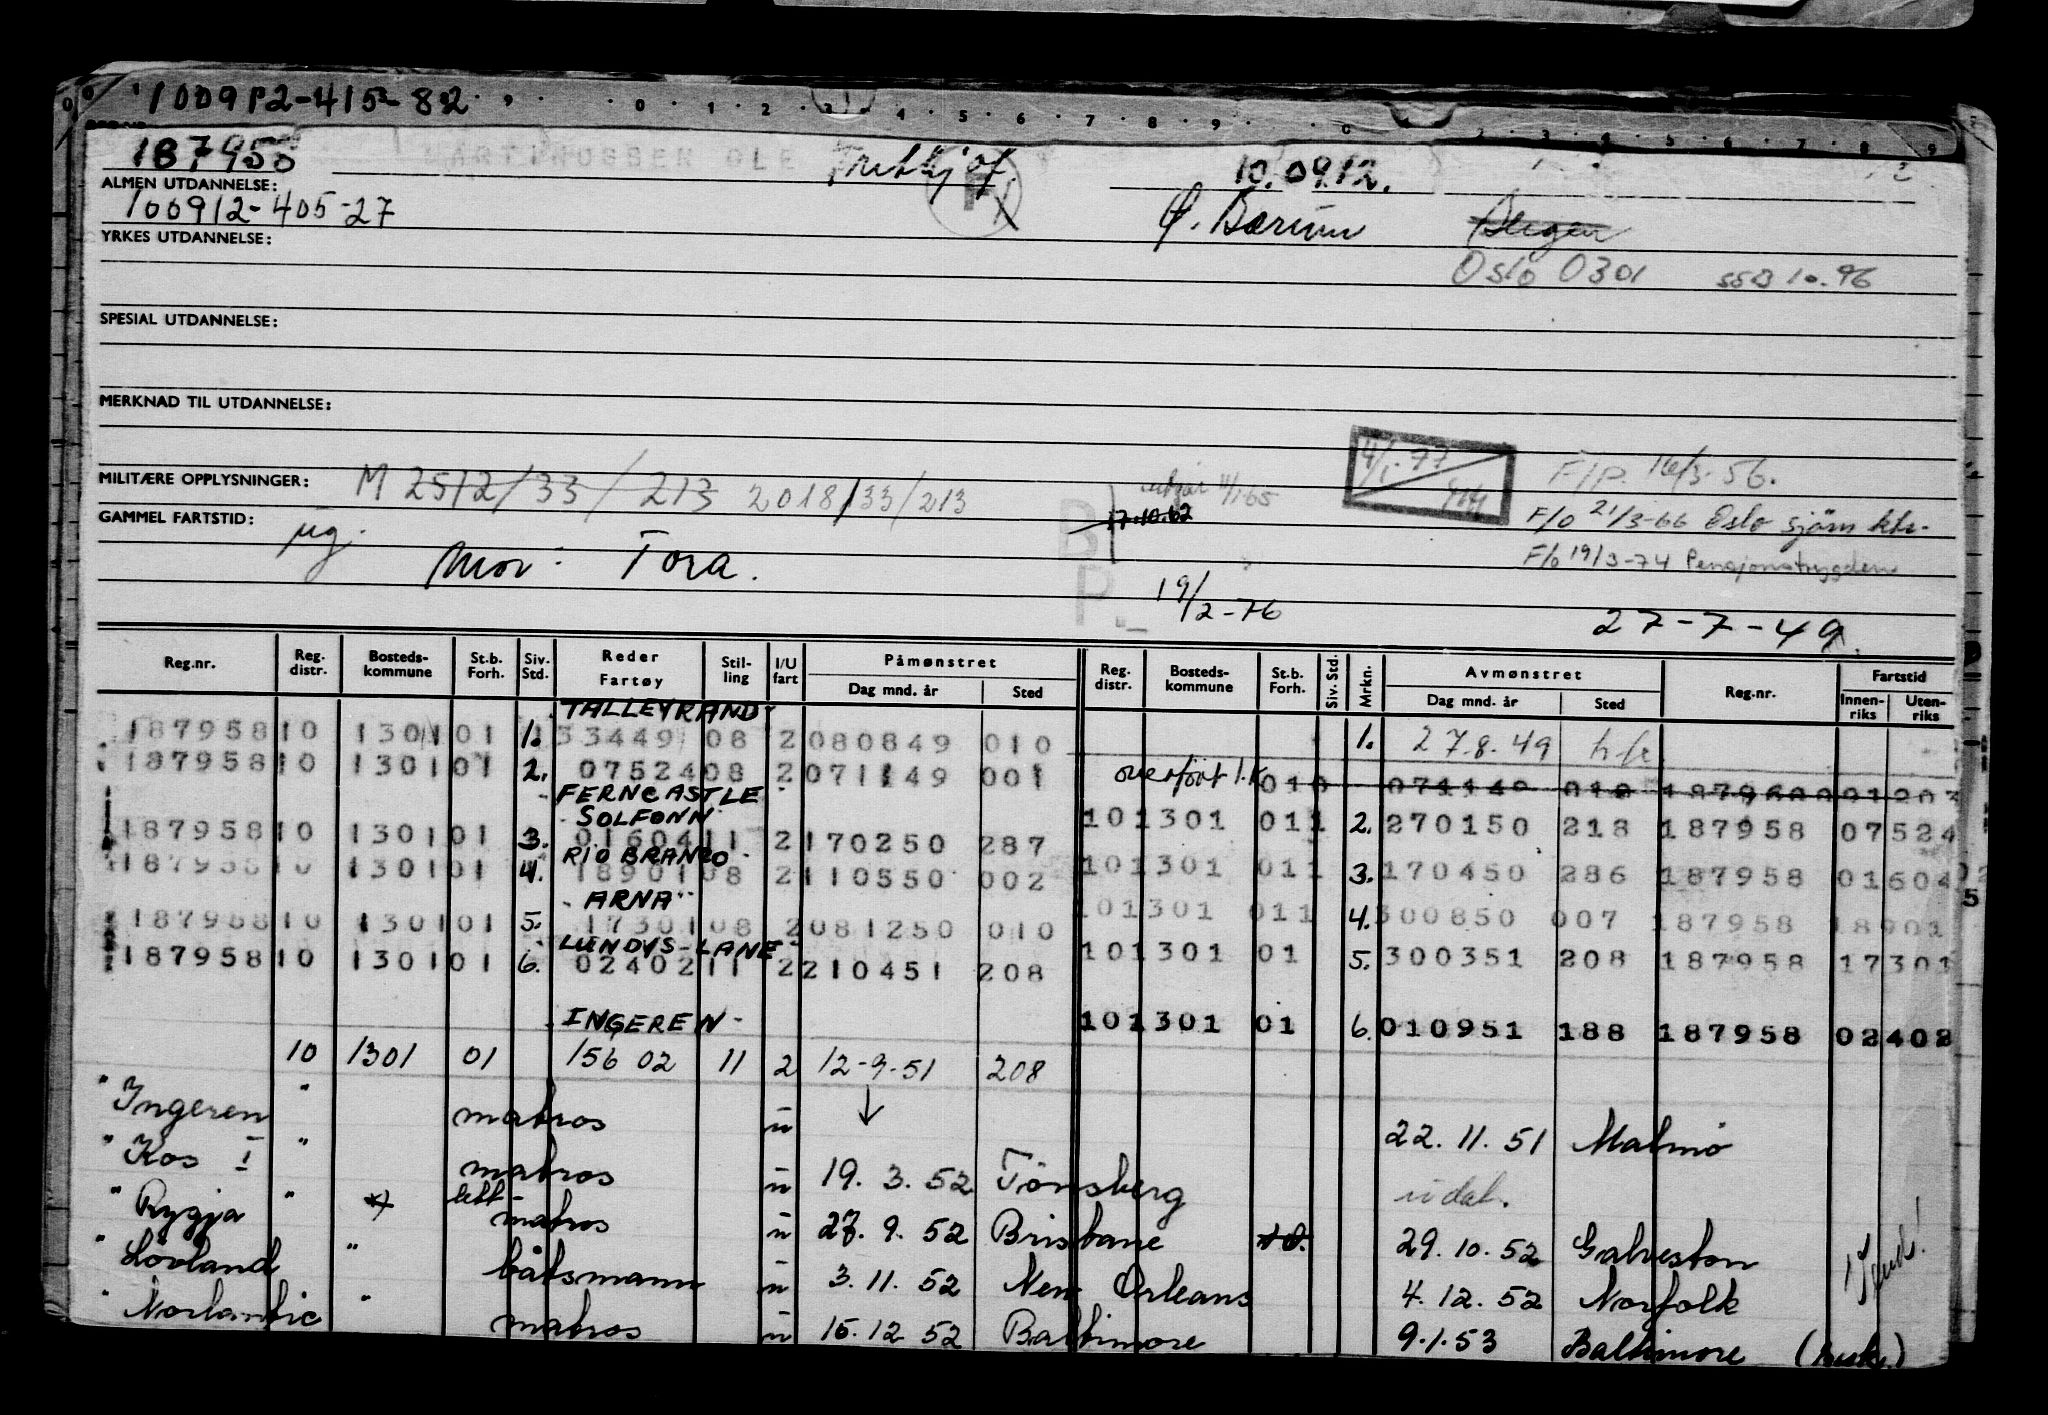 100912-415-82
187958 MARTINUSSEN OLE Frithjof. F 10.09.12. 2
ALMEN UTDANNELSE:
100912-405-27 Ø. Bærum
YRKES UTDANNELSE:
Oslo 0301 SSB 10.96
SPESIAL UTDANNELSE:
MERKNAD TIL UTDANNELSE:
MILITÆRE OPPLYSNINGER: M 2512/33/213 2018/33/213 11/1-65 4/1-77 F/P. 16/3-56.
GAMMEL FARTSTID: ug. 17.10.62 F/O 21/3-66 Oslo sjøm ktr.
Mor: Tora. B.P. F/o 19/3-74 Pensjonstrygden
19/2-76 27-7-49
Reg.nr. Reg. distr. Bosteds-kommune St.b. Forh. Siv. Std. Reder Fartøy Stil-ling I/U fart Påmønstret Dag mnd. år Sted Reg. distr. Bosteds-kommune St.b. Forh. Siv. Std. Mrkn. Avmønstret Dag mnd. år Sted Reg.nr. Fartstid Innen-riks Uten-riks
TALLEYRAND
187958 10 1301 01 1. 33449 08 2 080849 010 1. 27.8.49
187958 10 1301 01 2. 07524 08 2 071149 001 overført 1. 010 071149 010
FERNCASTLE
SOLFONN 10 1301 011 2. 270150 218 187958 07524
187958 10 1301 01 3. 01604 11 2 170250 287
RIO BRANCO 10 1301 011 3. 170450 286 187958 01604
187958 10 1301 01 4. 18901 08 2 110550 002
ARNA 10 1301 011 4. 300850 007 187958 18901
187958 10 1301 01 5. 17301 08 2 081250 010
LUNDYS-LANE 10 1301 01 5. 300351 208 187958 17301
187958 10 1301 01 6. 02402 11 2 210451 208
INGEREN 10 1301 01 6. 010951 188 187958 02402
10 1301 01 156 02 11 2 12-9-51 208
" Ingeren " matros u ↓ 22.11.51 Malmö
" Kos I " matros u 19.3.52 Tönsberg u dat.
" Rygja " lett matros u 27.9.52 Brisbane 29.10.52 Galveston
" Lövland " båtsmann u 3.11.52 New Orleans 4.12.52 Norfolk
" Norlantic " matros u 15.12.52 Baltimore 9.1.53 Baltimore